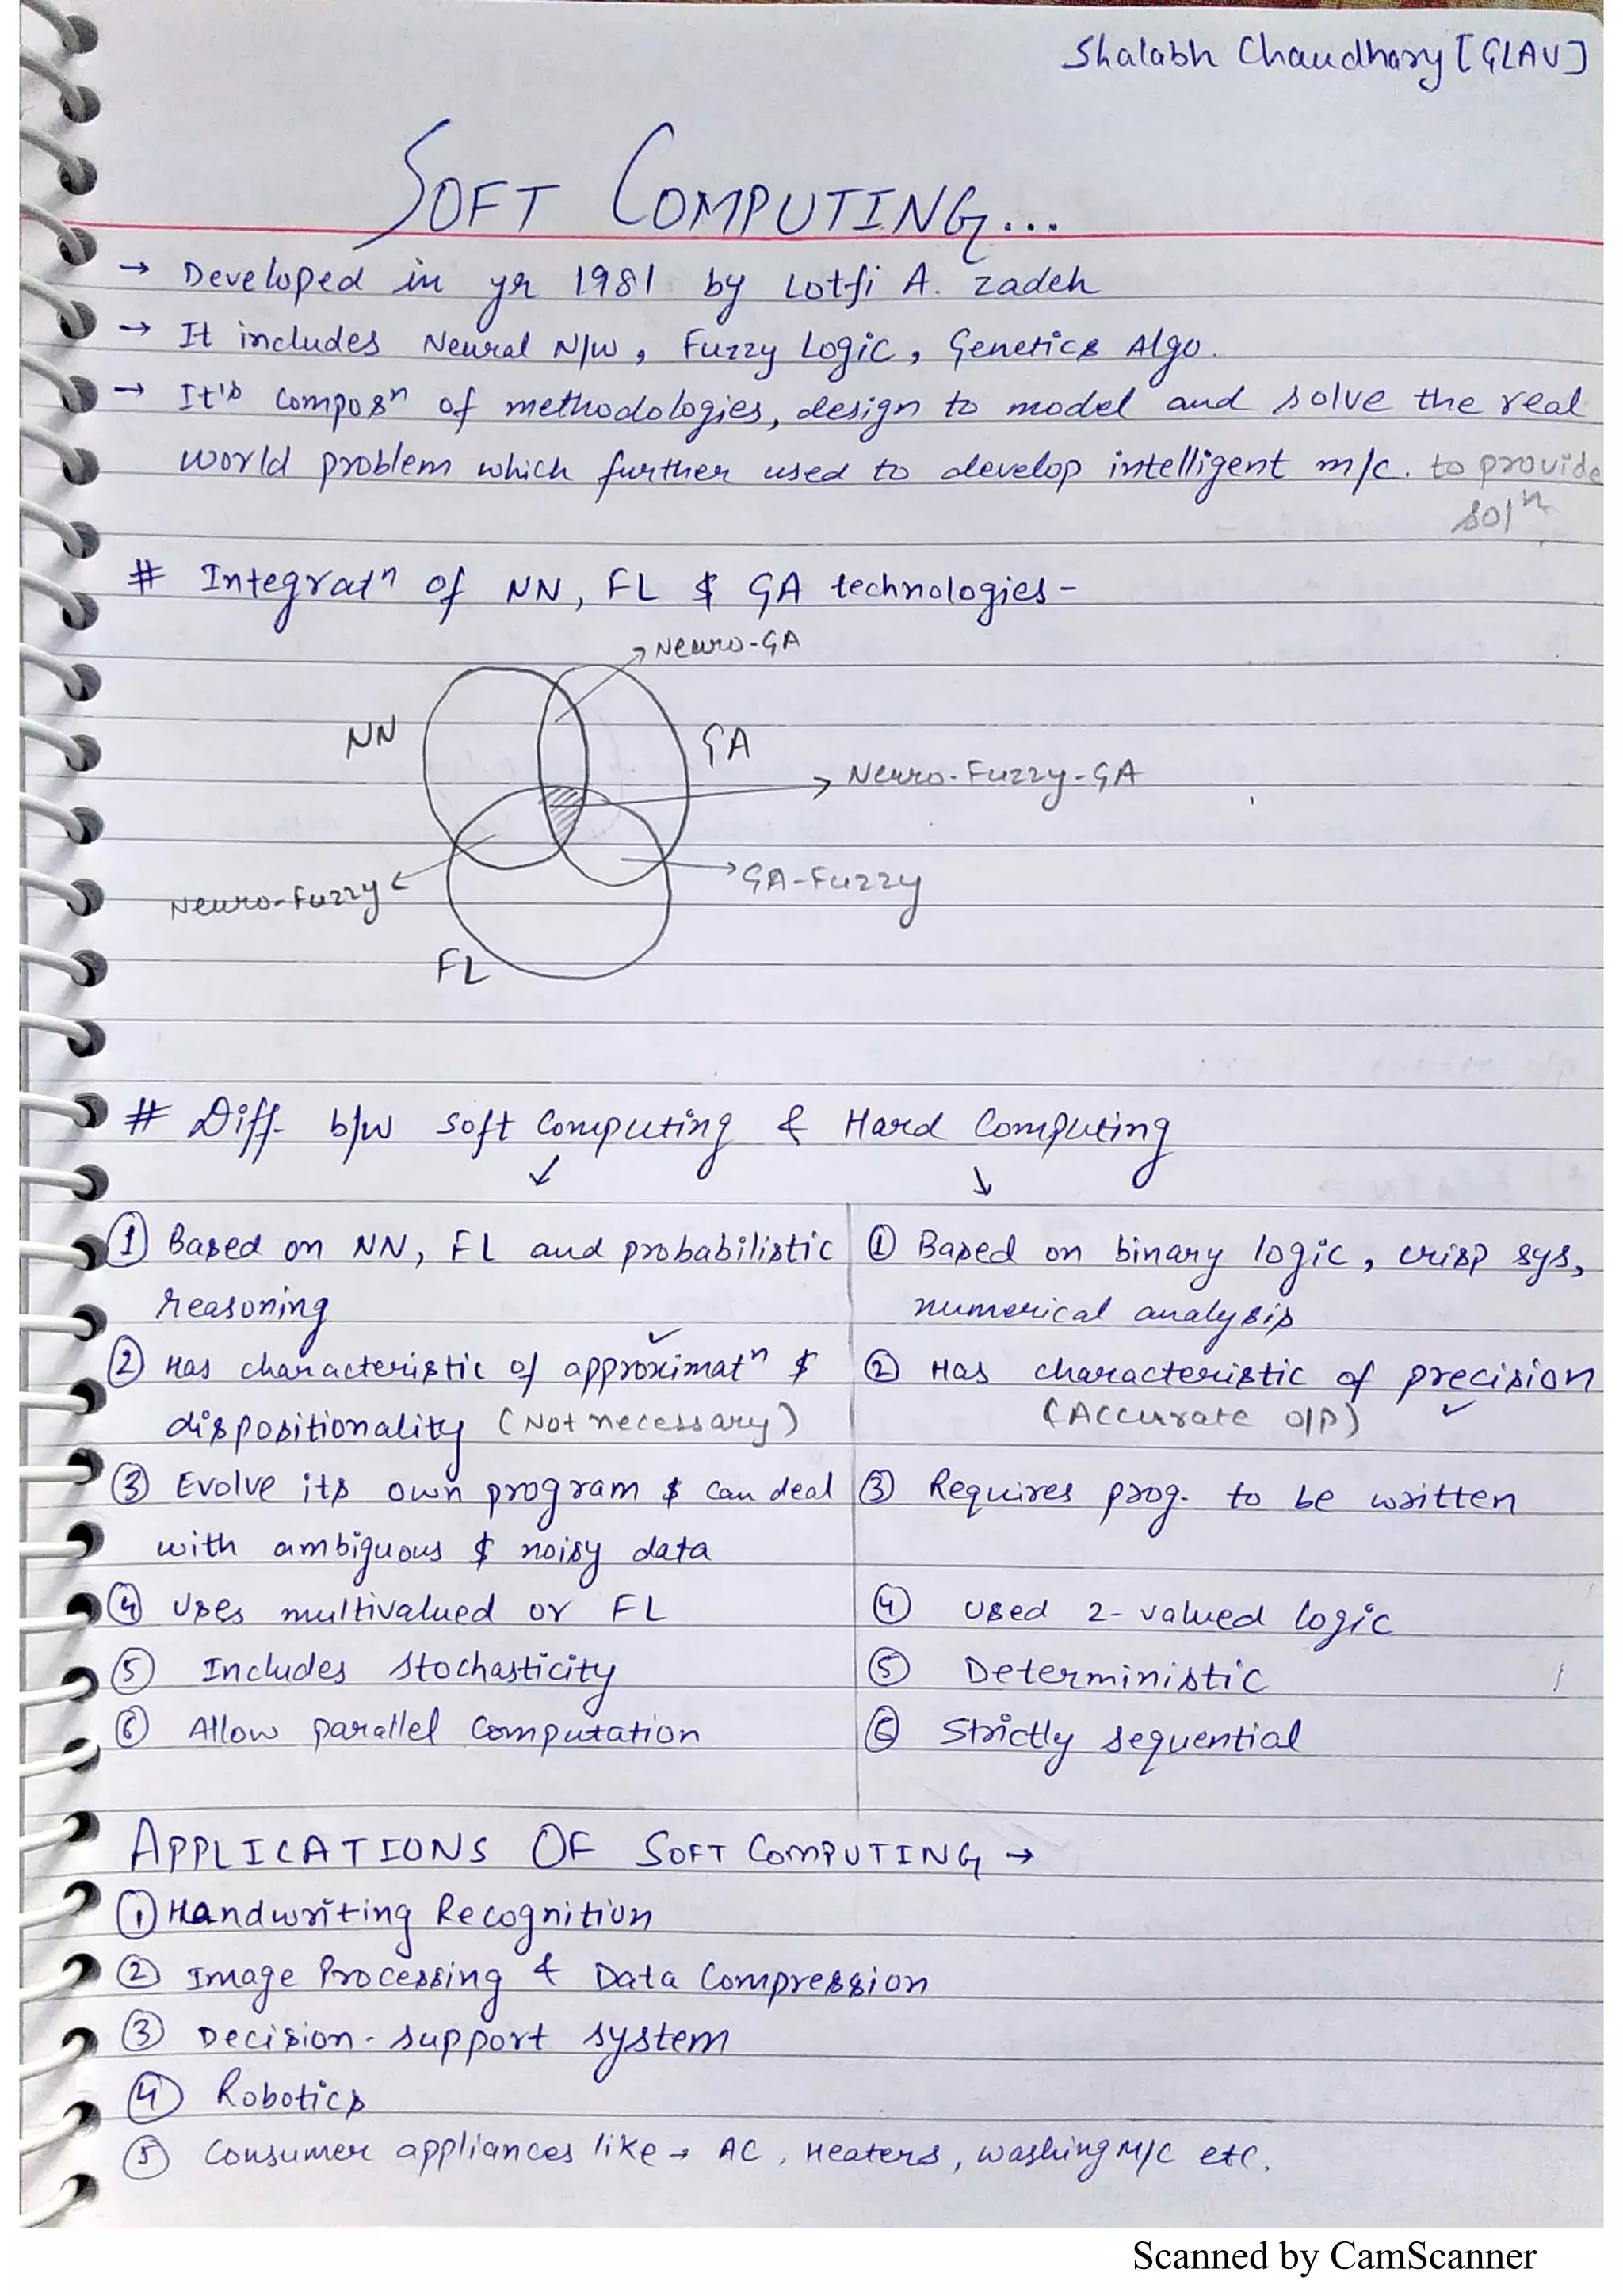 Shalabh Chaudhary [GLAU]
SOFT COMPUTING...
→ Developed in yr 1981 by Lotfi A. Zadeh
→ It includes Neural N/w, Fuzzy Logic, Genetics Algo.
→ It's composⁿ of methodologies, design to model and solve the real
world problem which further used to develop intelligent m/c. to provide
solⁿ
# Integratⁿ of NN, FL & GA technologies-
Neuro-GA
NN
GA
Neuro-Fuzzy-GA
GA-Fuzzy
Neuro-Fuzzy
FL
# Diff b/w Soft Computing & Hard Computing
① Based on NN, FL and probabilistic
reasoning
② Has characteristic of approximatⁿ &
dispositionality (Not necessary)
③ Evolve its own program & can deal
with ambiguous & noisy data
④ Uses multivalued or FL
⑤ Includes stochasticity
⑥ Allow parallel computation
① Based on binary logic, crisp sys,
numerical analysis
② Has characteristic of precision
(Accurate o/p)
③ Requires prog. to be written
④ Used 2-valued logic
⑤ Deterministic
⑥ Strictly sequential
APPLICATIONS OF SOFT COMPUTING →
① Handwriting Recognition
② Image Processing & Data Compression
③ Decision-support system
④ Robotics
⑤ Consumer appliances like → AC, Heaters, washing M/C etc.
Scanned by CamScanner